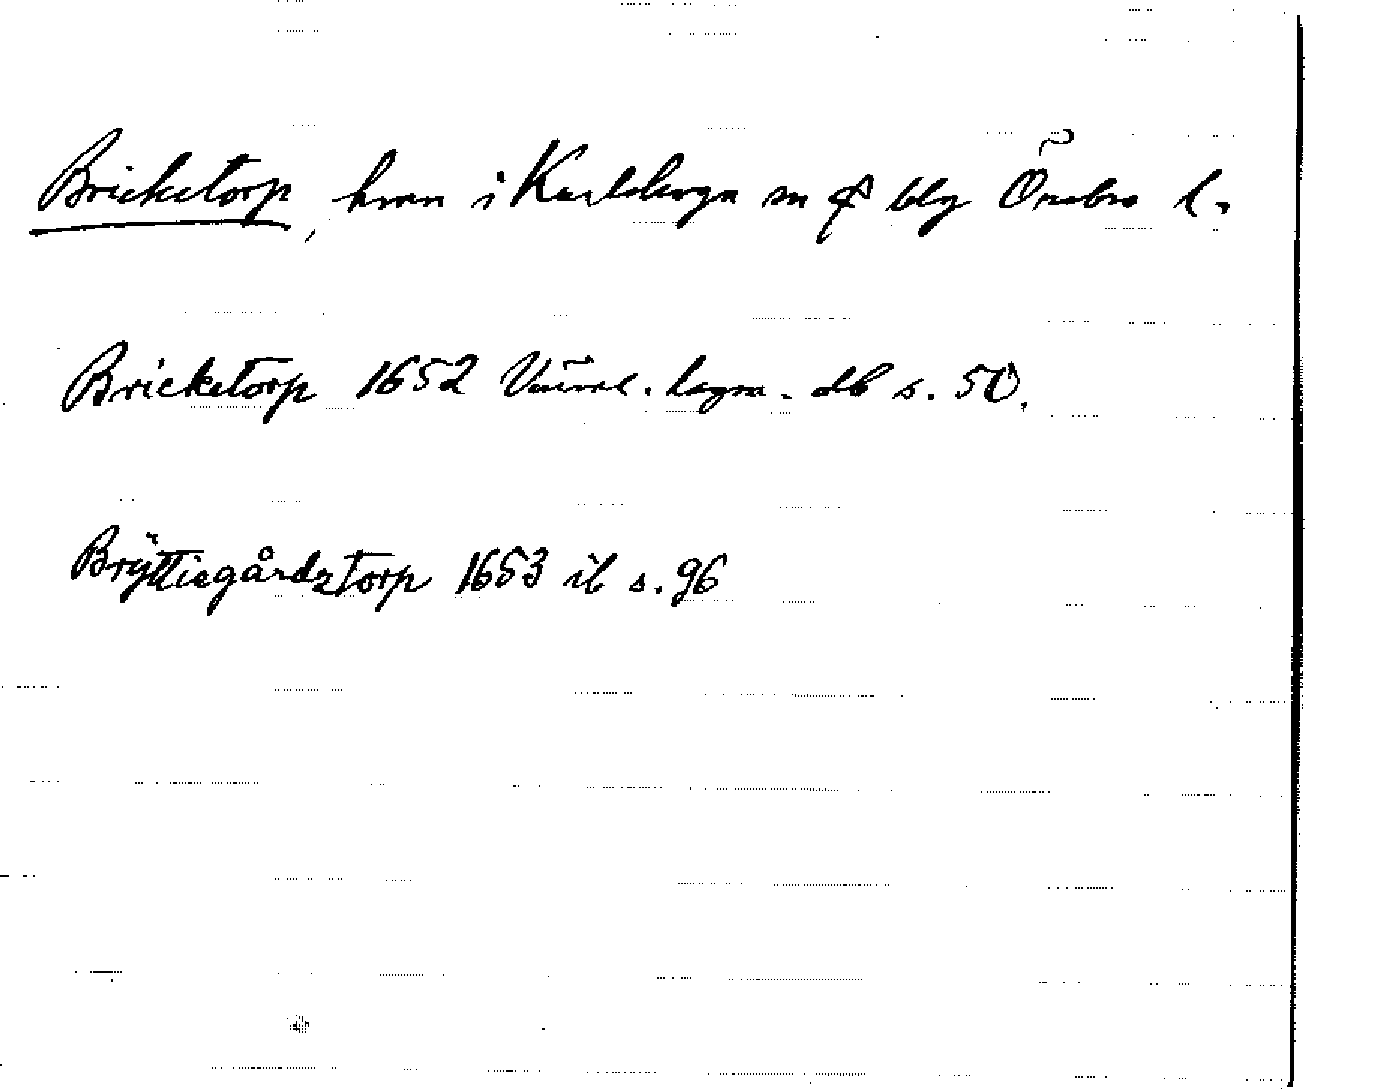 Bricketorp, hmn i Karlskoga sn & blg Örebro l.
Bricketorp 1652 Värml. lagm. db s. 50.
Bryttiegårdztorp 1653 ib s. 96